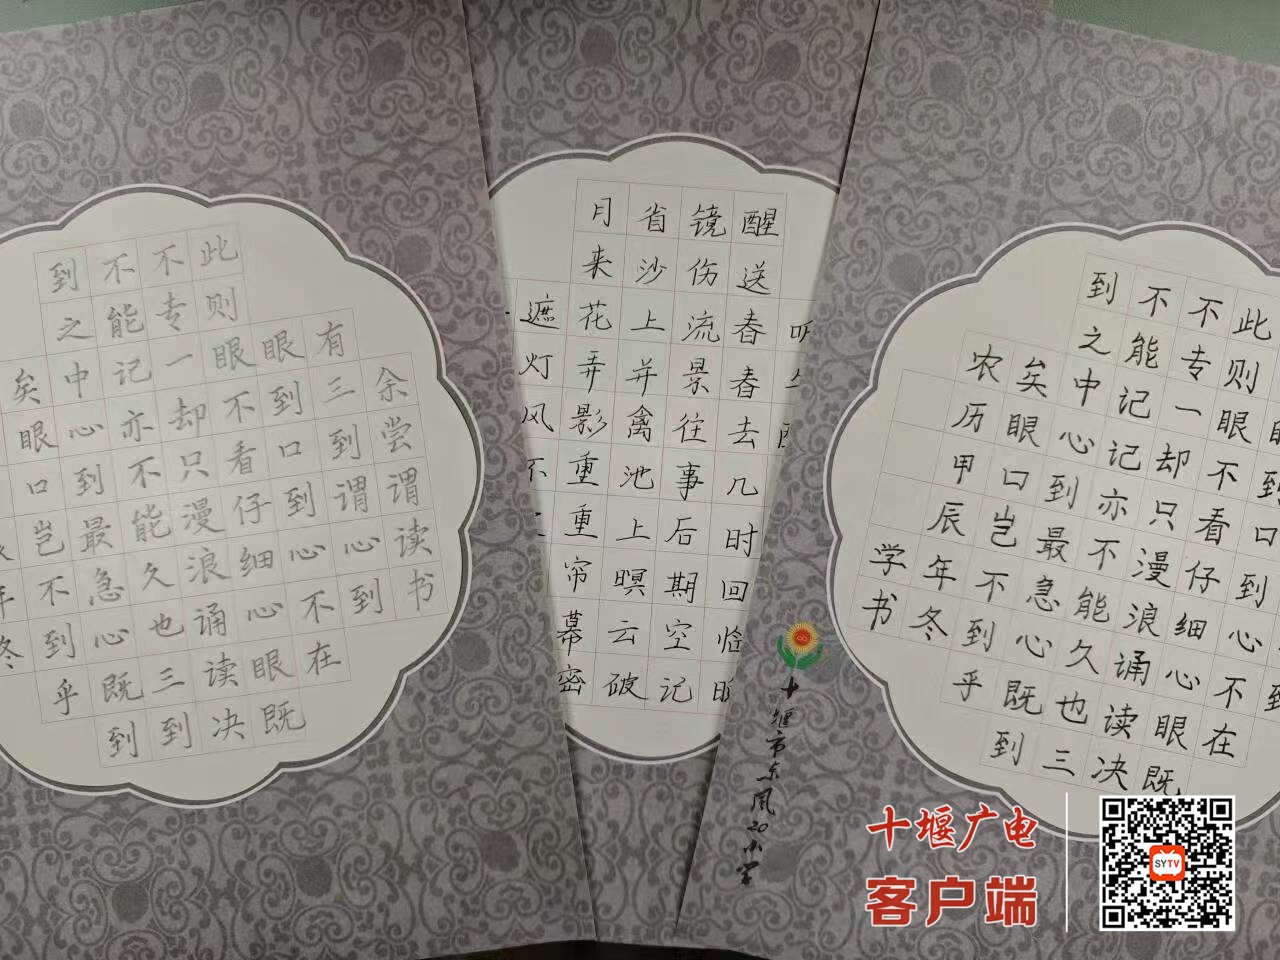 余尝谓读书
有三到谓心到
眼到口到心不在
此则眼不看仔细心眼既
不专一却只漫浪诵读决
不能记亦不能久也三到
到之中心到最急心既到
矣眼口岂不到乎
年冬
醒送春春去几时回临
镜伤流景往事后期空记
省沙上并禽池上暝云破
月来花弄影重重帘幕密
遮灯风不
眼到口到心不在
此则眼不看仔细心眼既
不专一却只漫浪诵读决
不能记记亦不能久也三
到之中心到最急心既到
矣眼口岂不到乎
农历甲辰年冬
学书
十堰市东风20小学
十堰广电
客户端
SYTV